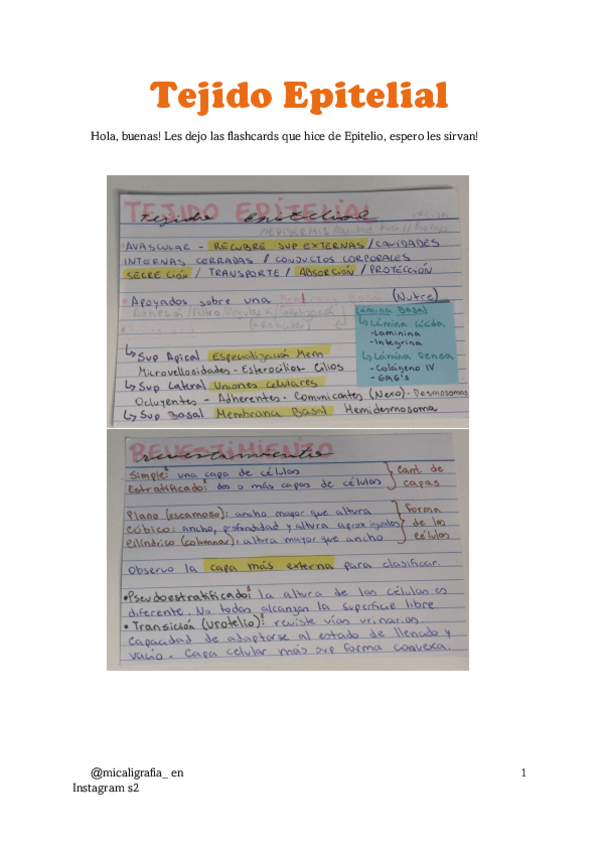 Tejido Epitelial
Hola, buenas! Les dejo las flashcards que hice de Epitelio, espero les sirvan!
TEJIDO EPITELIAL
Tejido Epitelial
AVASCULAR - RECUBRE SUP EXTERNAS / CAVIDADES
INTERNAS CERRADAS / CONDUCTOS CORPORALES
SECRECIÓN / TRANSPORTE / ABSORCIÓN / PROTECCIÓN
• Apoyados sobre una Membrana Basal (Nutre)
Lámina Basal
↳ Lámina Lúcida
- Laminina
- Integrina
↳ Lámina Densa
- Colágeno IV
- GAG's
↳ Sup Apical Especialización Mem
Microvellosidades - Esterocilios - Cilios
↳ Sup Lateral Uniones celulares
Ocluyentes - Adherentes - Comunicantes (Nexo) - Desmosomas
↳ Sup Basal Membrana Basal Hemidesmosoma
REVESTIMIENTO
revestimiento
Simple: una capa de células
Estratificado: dos o más capas de células
Cant. de
capas
Plano (escamoso): ancho mayor que altura
Cúbico: ancho, profundidad y altura aprox iguales
Cilíndrico (columnar): altura mayor que ancho
Forma
de las
células
Observo la capa más externa para clasificar.
• Pseudoestratificado: la altura de las células es
diferente. No todas alcanzan la superficie libre.
• Transición (Urotelio): reviste vías urinarias.
Capacidad de adaptarse al estado de llenado y
vacío. Capa celular más sup forma convexa.
@micaligrafia_ en
Instagram s2
1